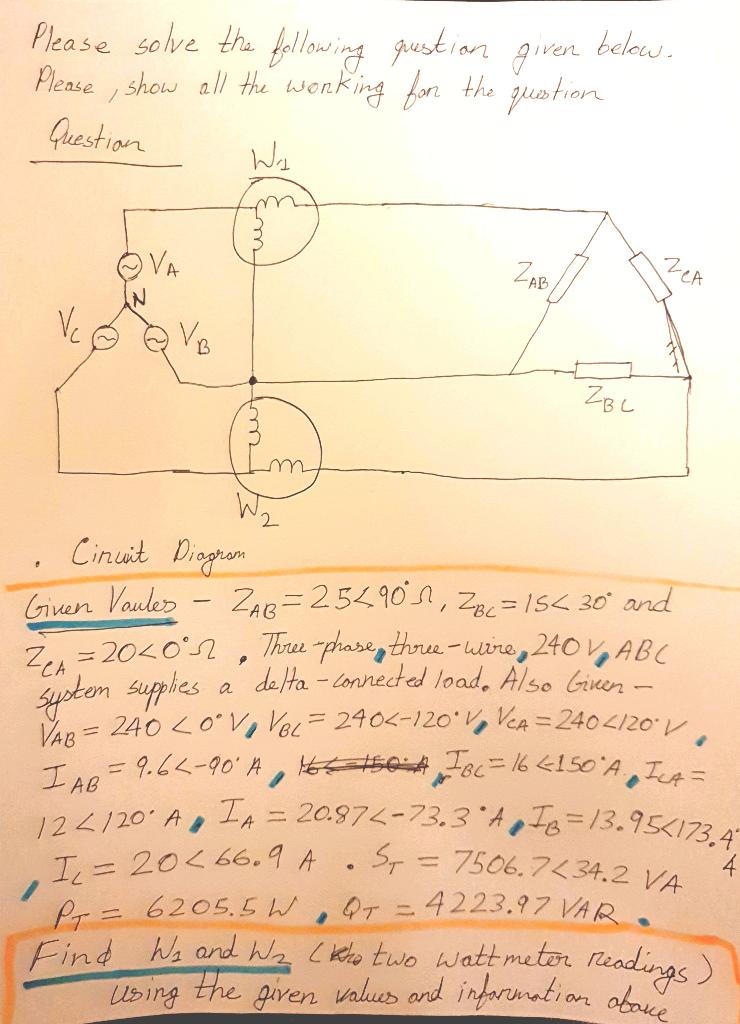 Please solve the following question given below.
Please, show all the working for the question
Question
W1
VA
N
VC
VB
ZAB
ZCA
ZBC
W2
. Circuit Diagram
Given Vaules - ZAB = 25<90°Ω, ZBC = 15<30° and
ZCA = 20<0°Ω . Three-phase, three-wire, 240 V, ABC
system supplies a delta-connected load. Also Given -
VAB = 240 <0° V, VBC = 240<-120° V, VCA = 240<120° V.
IAB = 9.6<-90° A, IBC = 16<150° A, ICA =
12<120° A, IA = 20.87<-73.3°A, IB = 13.95<173.4°
, IC = 20<66.9 A . ST = 7506.7<34.2 VA
PT = 6205.5 W, QT = 4223.97 VAR.
Find W1 and W2 (two wattmeter readings)
using the given values and information above